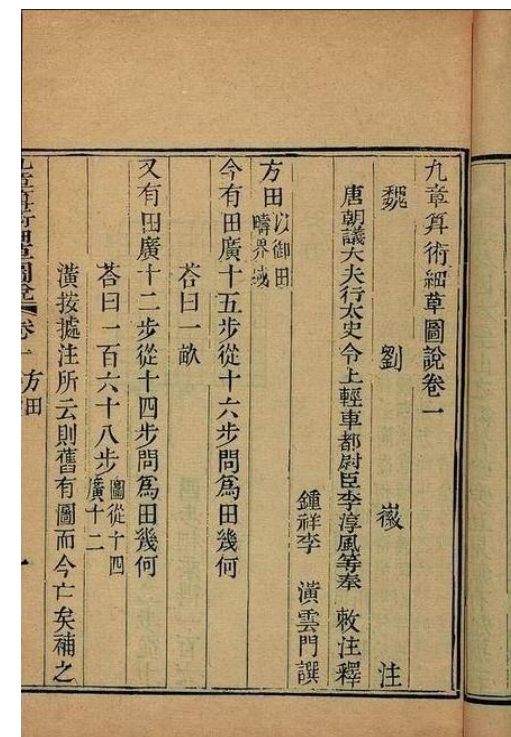 九章算術細草圖說卷一
魏 劉 徽 注
唐朝議大夫行太史令上輕車都尉臣李淳風等奉 敕注釋
鍾祥李 潢雲門譔
方田以御田疇界域
今有田廣十五步從十六步問為田幾何
荅曰一畝
又有田廣十二步從十四步問為田幾何
荅曰一百六十八步圖從十四廣十二
潢按據注所云則舊有圖而今亡矣補之
九章算術細草圖說 卷一 方田 一